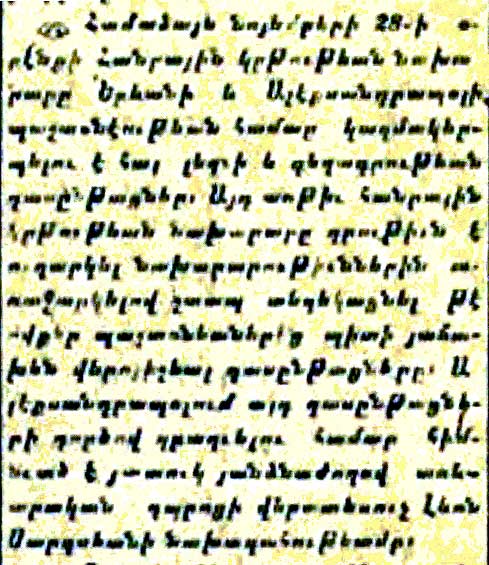 Համաձայն Նոյեմբերի 28-ի օ-
րէնքի Հանրային կրթութեան նախա
րարը Երևանի և Ալէքսանդրապոլի
պաշտօնէութեան համար կազմակեր-
պելու է հայ լեզւի և գեղագրութեան
դասընթացներ։ Այդ առթիւ Հանրային
կրթութեան նախարարը գրութիւն է
ուղարկել նախարարութիւններին ա-
ռաջարկելով շտապ տեղեկացնել թէ
ովքեր պաշտօնեաներից պիտի յաճա-
խեն վերոյիշեալ դասընթացները։ Ա
լէքսանդրապոլում այդ դասընթացնե-
րի գործով զբաղւելու համար հիմ-
նւած է յատուկ յանձնաժողով առև-
տրական դպրոցի վերատեսուչ Լևոն
Սարգսեանի նախագահութեամբ։